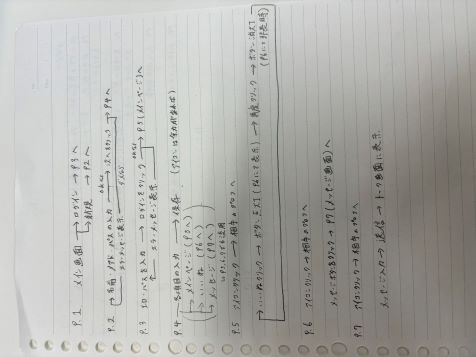 P.1 メイン画面 → ログイン → P3へ
→ 新規 → P2へ
P.2 → 名前・メアド・パスの入力 → 次へをクリック → P4へ
エラーメッセージ表示
P.3 ID・パスを入力 → ログインをクリック → P5(メインページ)へ
エラーメッセージ表示
P.4 各項目の入力 → 保存 (アイコンは余力があれば)
→ メインページ(P5へ)
→ いいね(P6へ)
→ メッセージ(P7へ)
P5,6,7でも適用
P.5 アイコンクリック → 相手のプロフへ
いいねクリック → ボタン点灯(P6にて表示) → 再度クリック → ボタン消灯
(P6にて非表示)
P.6 アイコンクリック → 相手のプロフへ
メッセージボタンをクリック → P7(メッセージ画面)へ
P.7 アイコンクリック → 相手のプロフへ
メッセージ入力 → 送信 → トーク画面に表示